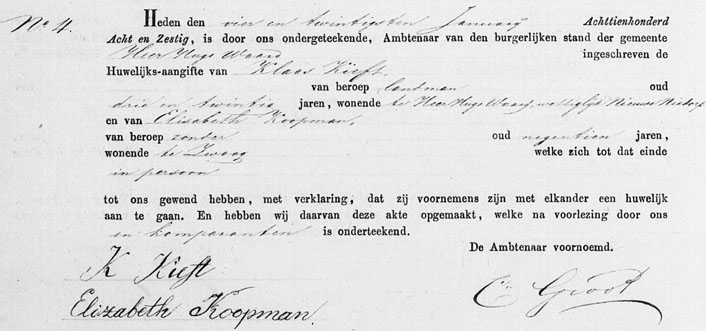 No 4.
Heden den vier en twintigsten January Achttienhonderd
Acht en Zestig, is door ons ondergeteekende, Ambtenaar van den burgerlijken stand der gemeente
Heer Hugo Waard ingeschreven de
Huwelijks-aangifte van Klaas Kieft,
van beroep landman oud
drie en twintig jaren, wonende te Heer Hugo Waard, Nieuwe Niedorp
en van Elisabeth Koopman,
van beroep zonder oud negentien jaren,
wonende te Zwaag welke zich tot dat einde
in persoon
tot ons gewend hebben, met verklaring, dat zij voornemens zijn met elkander een huwelijk
aan te gaan. En hebben wij daarvan deze akte opgemaakt, welke na voorlezing door ons
en komparanten is onderteekend.
De Ambtenaar voornoemd.
K Kieft
Elizabeth Koopman.
C Groot